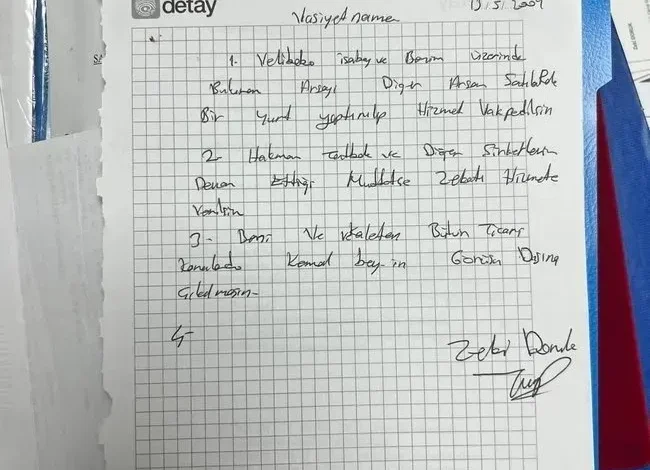 detay
Vasiyetname
1. Velibaba isabey ve Benim üzerimde
Bulunan Arsayı Diğer Arsan Sahiblerde
Bir yurt yaptırılıp Hizmet Vakpedilsin
2 Hakman ve Diğer Şirketlerin
Devam Ettiği Müddetçe Zekatı Hizmete
Verilsin
3- Beni Ve Bütün Ticari
konularda Kemal bey-in Görüşü Dışına
Çıkılmasın-
4-
Zeki